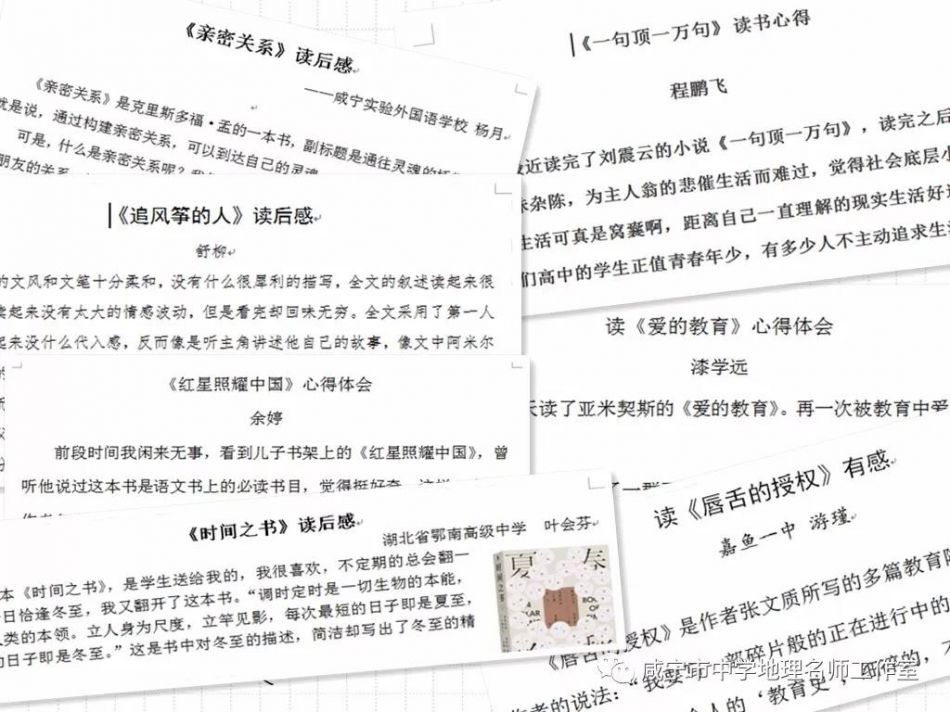 《亲密关系》读后感
——咸宁实验外国语学校 杨月
《亲密关系》是克里斯多福·孟的一本书，副标题是通往灵魂的
就是说，通过构建亲密关系，可以到达自己的灵魂
可是，什么是亲密关系呢？
朋友的关系
《追风筝的人》读后感
舒柳
的文风和文笔十分柔和，没有什么很犀利的描写，全文的叙述读起来很
读起来没有太大的情感波动，但是看完却回味无穷。全文采用了第一人
起来没什么代入感，反而像是听主角讲述他自己的故事，像文中阿米尔
《红星照耀中国》心得体会
余婷
前段时间我闲来无事，看到儿子书架上的《红星照耀中国》，曾
听他说过这本书是语文书上的必读书目，觉得挺好奇
《时间之书》读后感
湖北省鄂南高级中学 叶会芬
本《时间之书》，是学生送给我的，我很喜欢，不定期的总会翻一
日恰逢冬至，我又翻开了这本书。“调时定时是一切生物的本能，
人类的本领。立人身为尺度，立竿见影，每次最短的日子即是夏至，
的日子即是冬至。”这是书中对冬至的描述，简洁却写出了冬至的精
夏 春
时间之书
《一句顶一万句》 读书心得
程鹏飞
近读完了刘震云的小说《一句顶一万句》，读完之后
杂陈，为主人翁的悲催生活而难过，觉得社会底层小
生活可真是窝囊啊，距离自己一直理解的现实生活好
们高中的学生正值青春年少，有多少人不主动追求生
读《爱的教育》心得体会
漆学远
天读了亚米契斯的《爱的教育》。再一次被教育中
读《唇舌的授权》有感
嘉鱼一中 游瑾
《唇舌的授权》是作者张文质所写的多篇教育
部碎片般的正在进行中的
作者的说法：“我要
个人的‘教育史’
咸宁市中学地理名师工作室